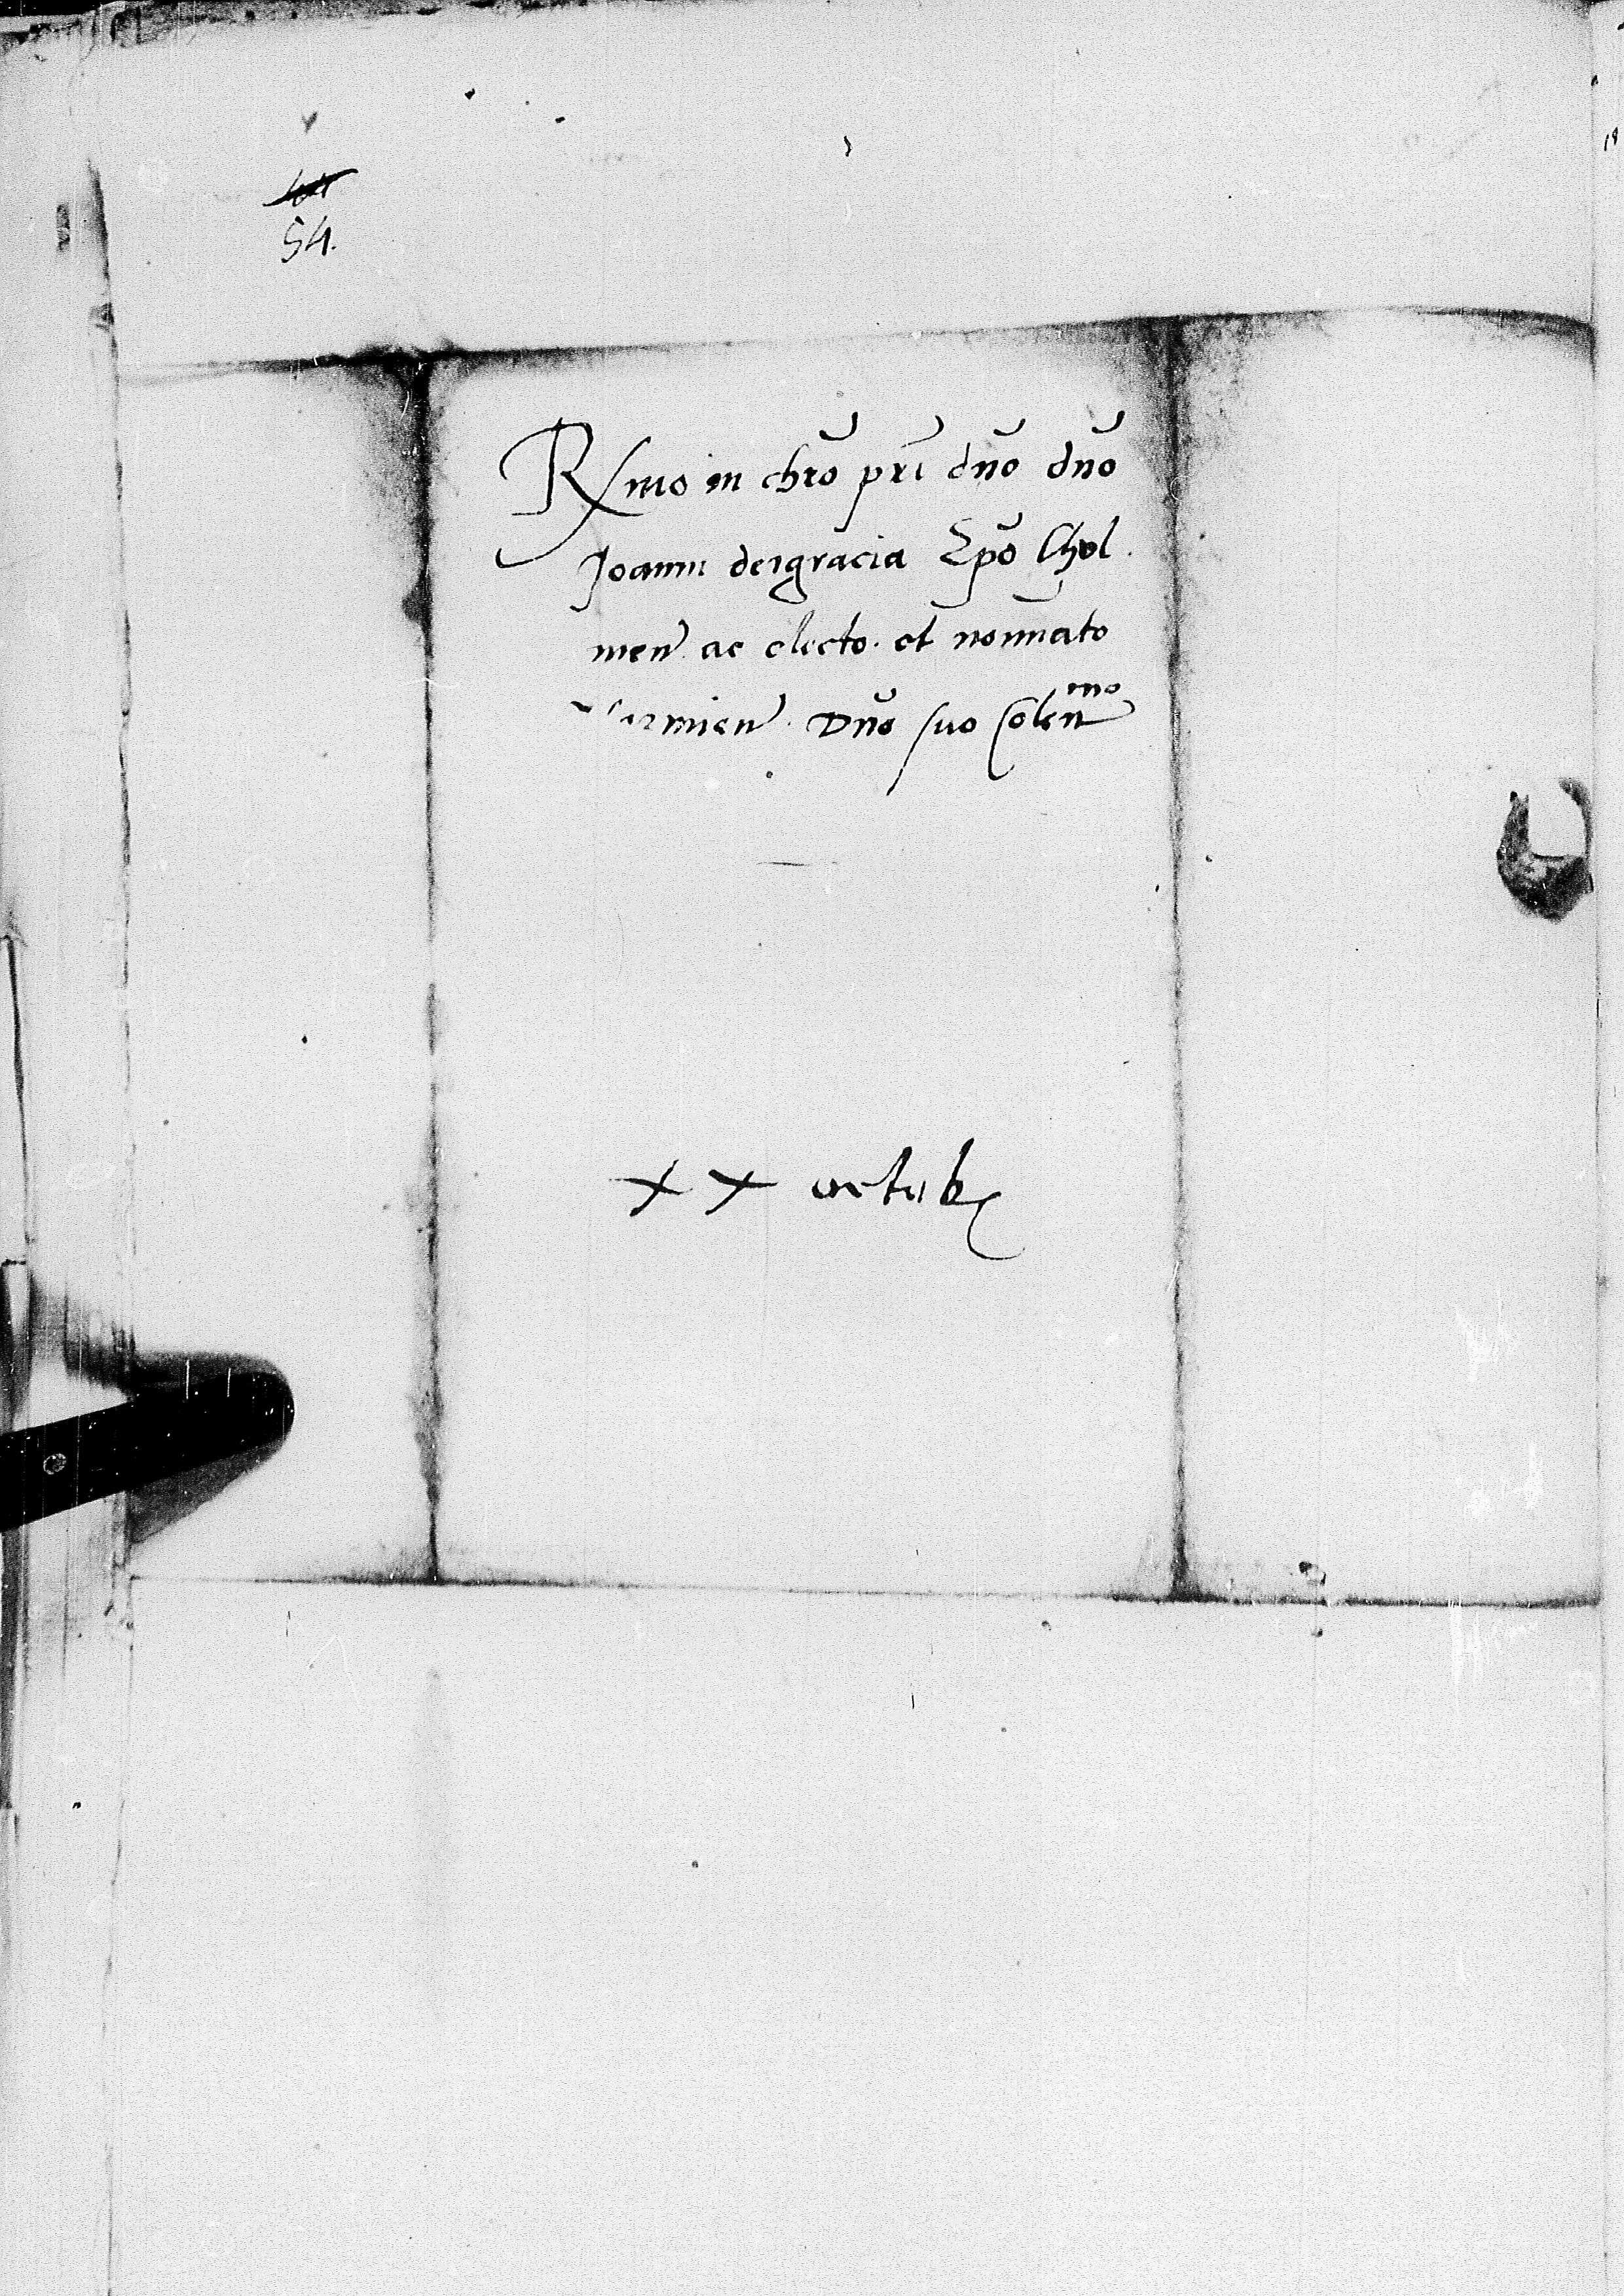 54.
Rsmo in chro pri dno dno
Joanni dei gracia Epo Chol
men ac electo et nominato
dno suo colenmo
XX octob